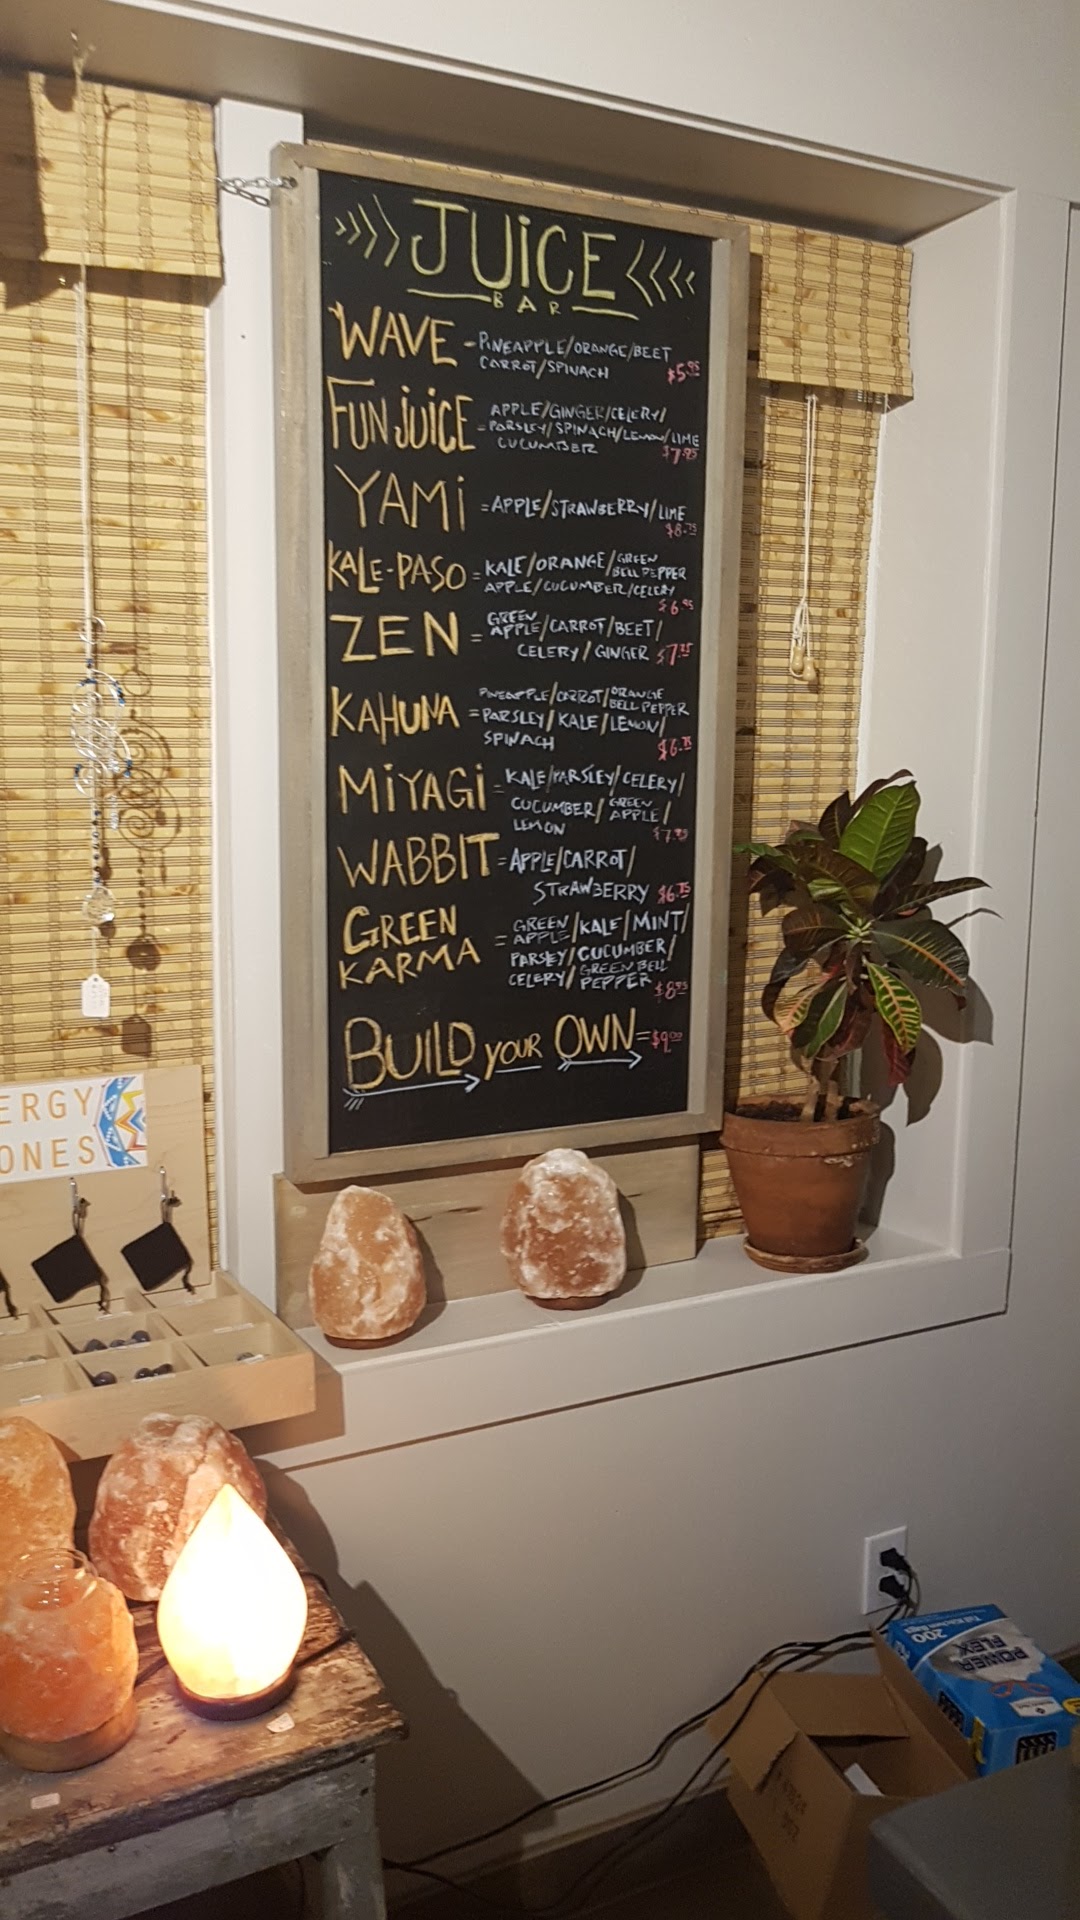 JUICE
BAR
WAVE - PINEAPPLE/ORANGE/BEET
CARROT/SPINACH $5.95
FUN JUICE = APPLE/GINGER/CELERY/
PARSLEY/SPINACH/LEMON/LIME
CUCUMBER $7.95
YAMI = APPLE/STRAWBERRY/LIME
$8.75
KALE-PASO = KALE/ORANGE/GREEN
BELL PEPPER
APPLE/CUCUMBER/CELERY
$6.95
ZEN = GREEN
APPLE/CARROT/BEET/
CELERY/GINGER $7.25
KAHUNA = PINEAPPLE/CARROT/ORANGE
BELL PEPPER
PARSLEY/KALE/LEMON/
SPINACH $6.75
MIYAGI = KALE/PARSLEY/CELERY/
CUCUMBER/GREEN
APPLE/
LEMON $7.95
WABBIT = APPLE/CARROT/
STRAWBERRY $6.75
GREEN
KARMA = GREEN
APPLE/KALE/MINT/
PARSLEY/CUCUMBER/
CELERY/GREEN BELL
PEPPER $8.95
BUILD YOUR OWN = $9.00
ERGY
ONES
Tall Kitchen Bags
200
POWER
FLEX